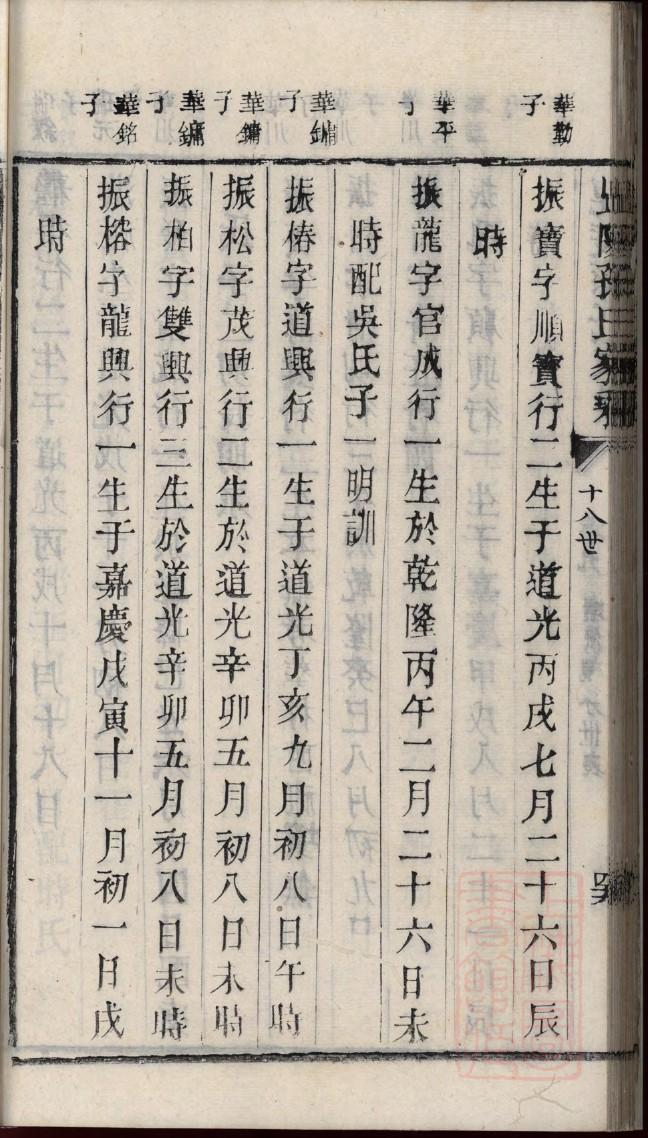 孫氏家
十八世
華勤子
振寶字順寶行二生于道光丙戌七月二十六日辰
時
華平子
振龍字官成行一生於乾隆丙午二月二十六日未
時配吳氏子一明訓
華鏞子
振椿字道興行一生于道光丁亥九月初八日午時
華鏞子
振松字茂興行二生於道光辛卯五月初八日未時
華鏞子
振柏字雙興行三生於道光辛卯五月初八日未時
華銘子
振榕字龍興行一生于嘉慶戊寅十一月初一日戌
時